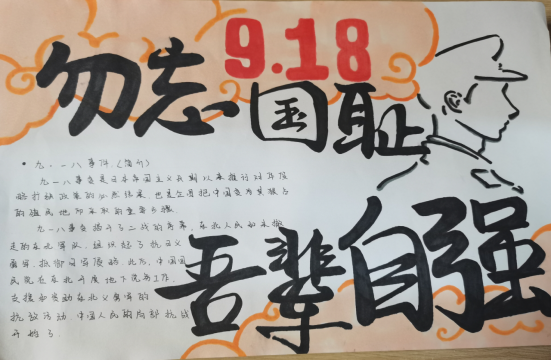 9.18
勿忘国耻
吾辈自强
九·一八事件(简介)
九一八事变是日本帝国主义长期以来推行对华侵
略扩张政策的必然结果,也是企图把中国变为其独占
的殖民地而采取的重要步骤
九一八事变揭开了二战的序幕,东北人民和未撤
走的东北军队,组织起了抗日义
勇军,抵御日寇侵略,此后,中国国
民党在东北开展地下党务工作,
支援和策动东北义勇军的
抗敌活动,中国人民的局部抗战
开始了